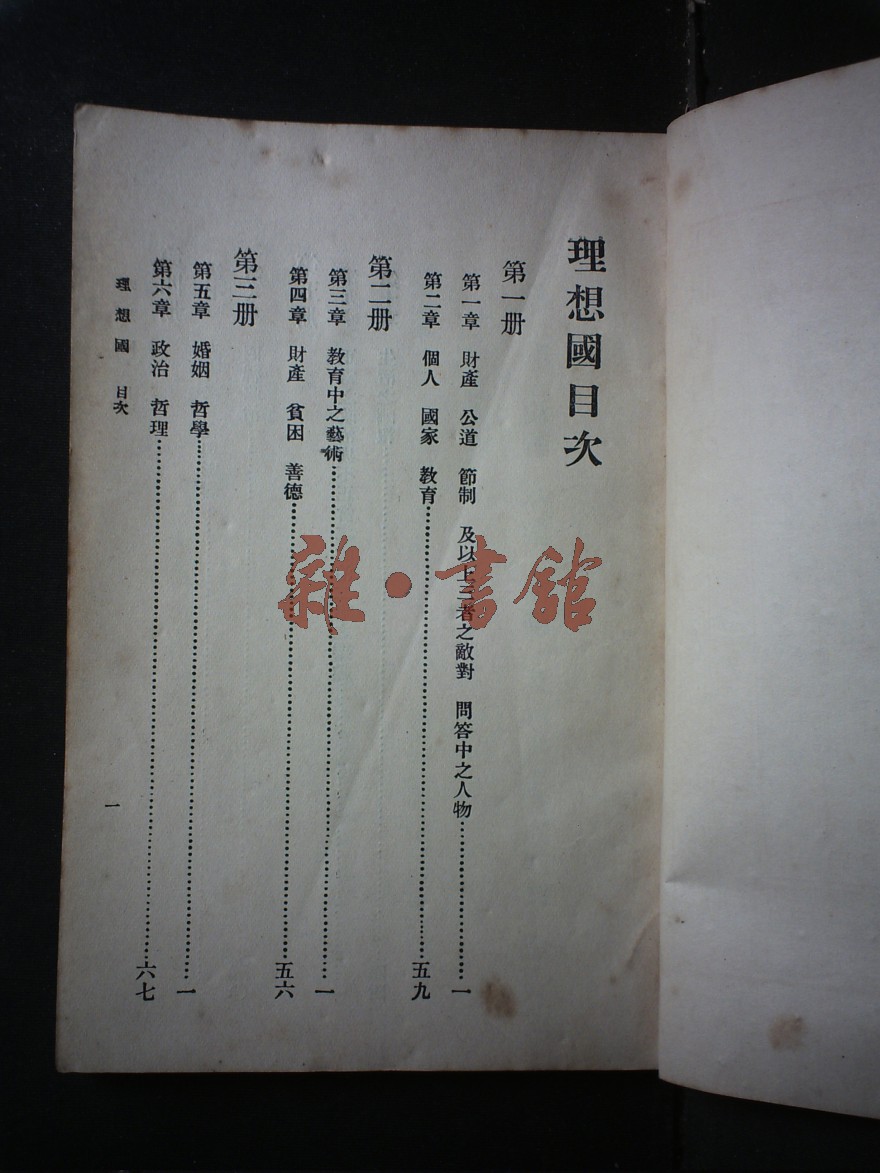 理想國目次
第一册
第一章 財產 公道 節制 及以上三者之敵對 問答中之人物 一
第二章 個人 國家 教育 五九
第二册
第三章 教育中之藝術 一
第四章 財產 貧困 善德 五六
第三册
第五章 婚姻 哲學 一
第六章 政治 哲理 六七
理想國 目次
一
雜·書館